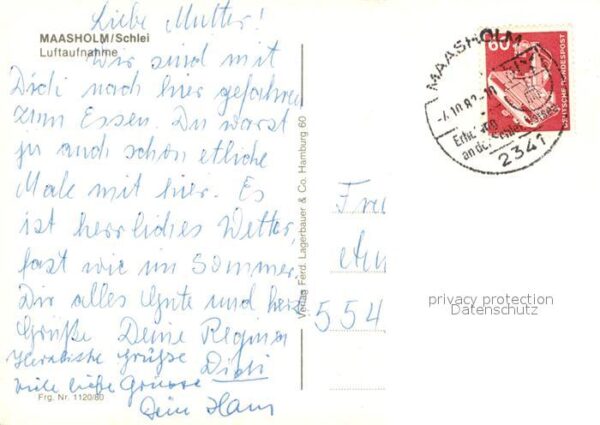 Liebe Mutter!
MAASHOLM/Schlei
Luftaufnahme
Wir sind mit
Didi nach hier gefahren
zum Essen. Du warst
ja auch schon etliche
Male mit hier. Es
ist herrliches Wetter,
fast wie im Sommer.
Dir alles Gute und herz.
Grüße Deine Regina
Herzliche Grüße Didi
viele liebe Grüsse
Dein Hans
Frg. Nr. 1120/80
Verlag Ferd. Lagerbauer & Co. Hamburg 60
MAASHOLM
-4.10.82-18
an der
2341
60
DEUTSCHE BUNDESPOST
554
privacy protection
Datenschutz